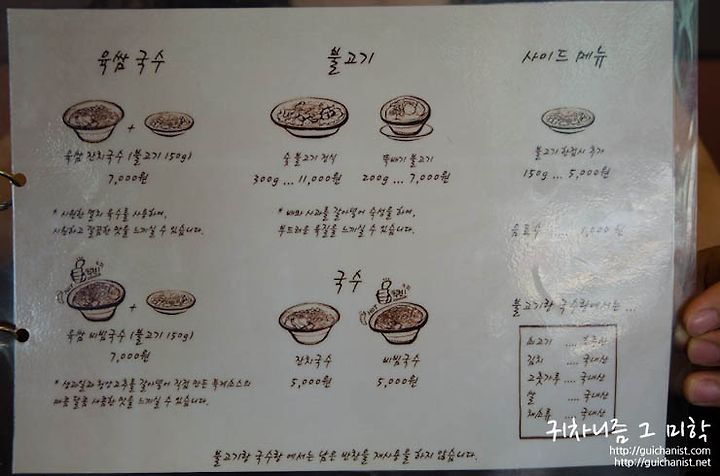 육쌈 국수
+
육쌈 잔치국수 (불고기 150g)
7,000원
* 시원한 멸치 육수를 사용하여,
시원하고 깔끔한 맛을 느끼실 수 있습니다.
+
육쌈 비빔국수 (불고기 150g)
7,000원
* 생과일과 청양고추를 갈아넣어 직접 만든 특제소스의
매콤 달콤 새콤한 맛을 느끼실 수 있습니다.
불고기
숯 불고기 정식
300g ... 11,000원
뚝배기 불고기
200g ... 7,000원
* 배와 사과를 갈아넣어 숙성을 하여,
부드러운 육질을 느끼실 수 있습니다.
국수
잔치국수
5,000원
비빔국수
5,000원
사이드 메뉴
불고기 한접시 추가
150g ... 5,000원
음료수 .... 1,000원
불고기랑 국수랑에서는 ...
쇠고기 ....
김치 .... 국내산
고춧가루 .... 국내산
쌀 .... 국내산
채소류 .... 국내산
불고기랑 국수랑 에서는 남은 반찬을 재사용을 하지 않습니다.
귀차니즘 그 미학
http://guichanist.com
http://guichanist.net